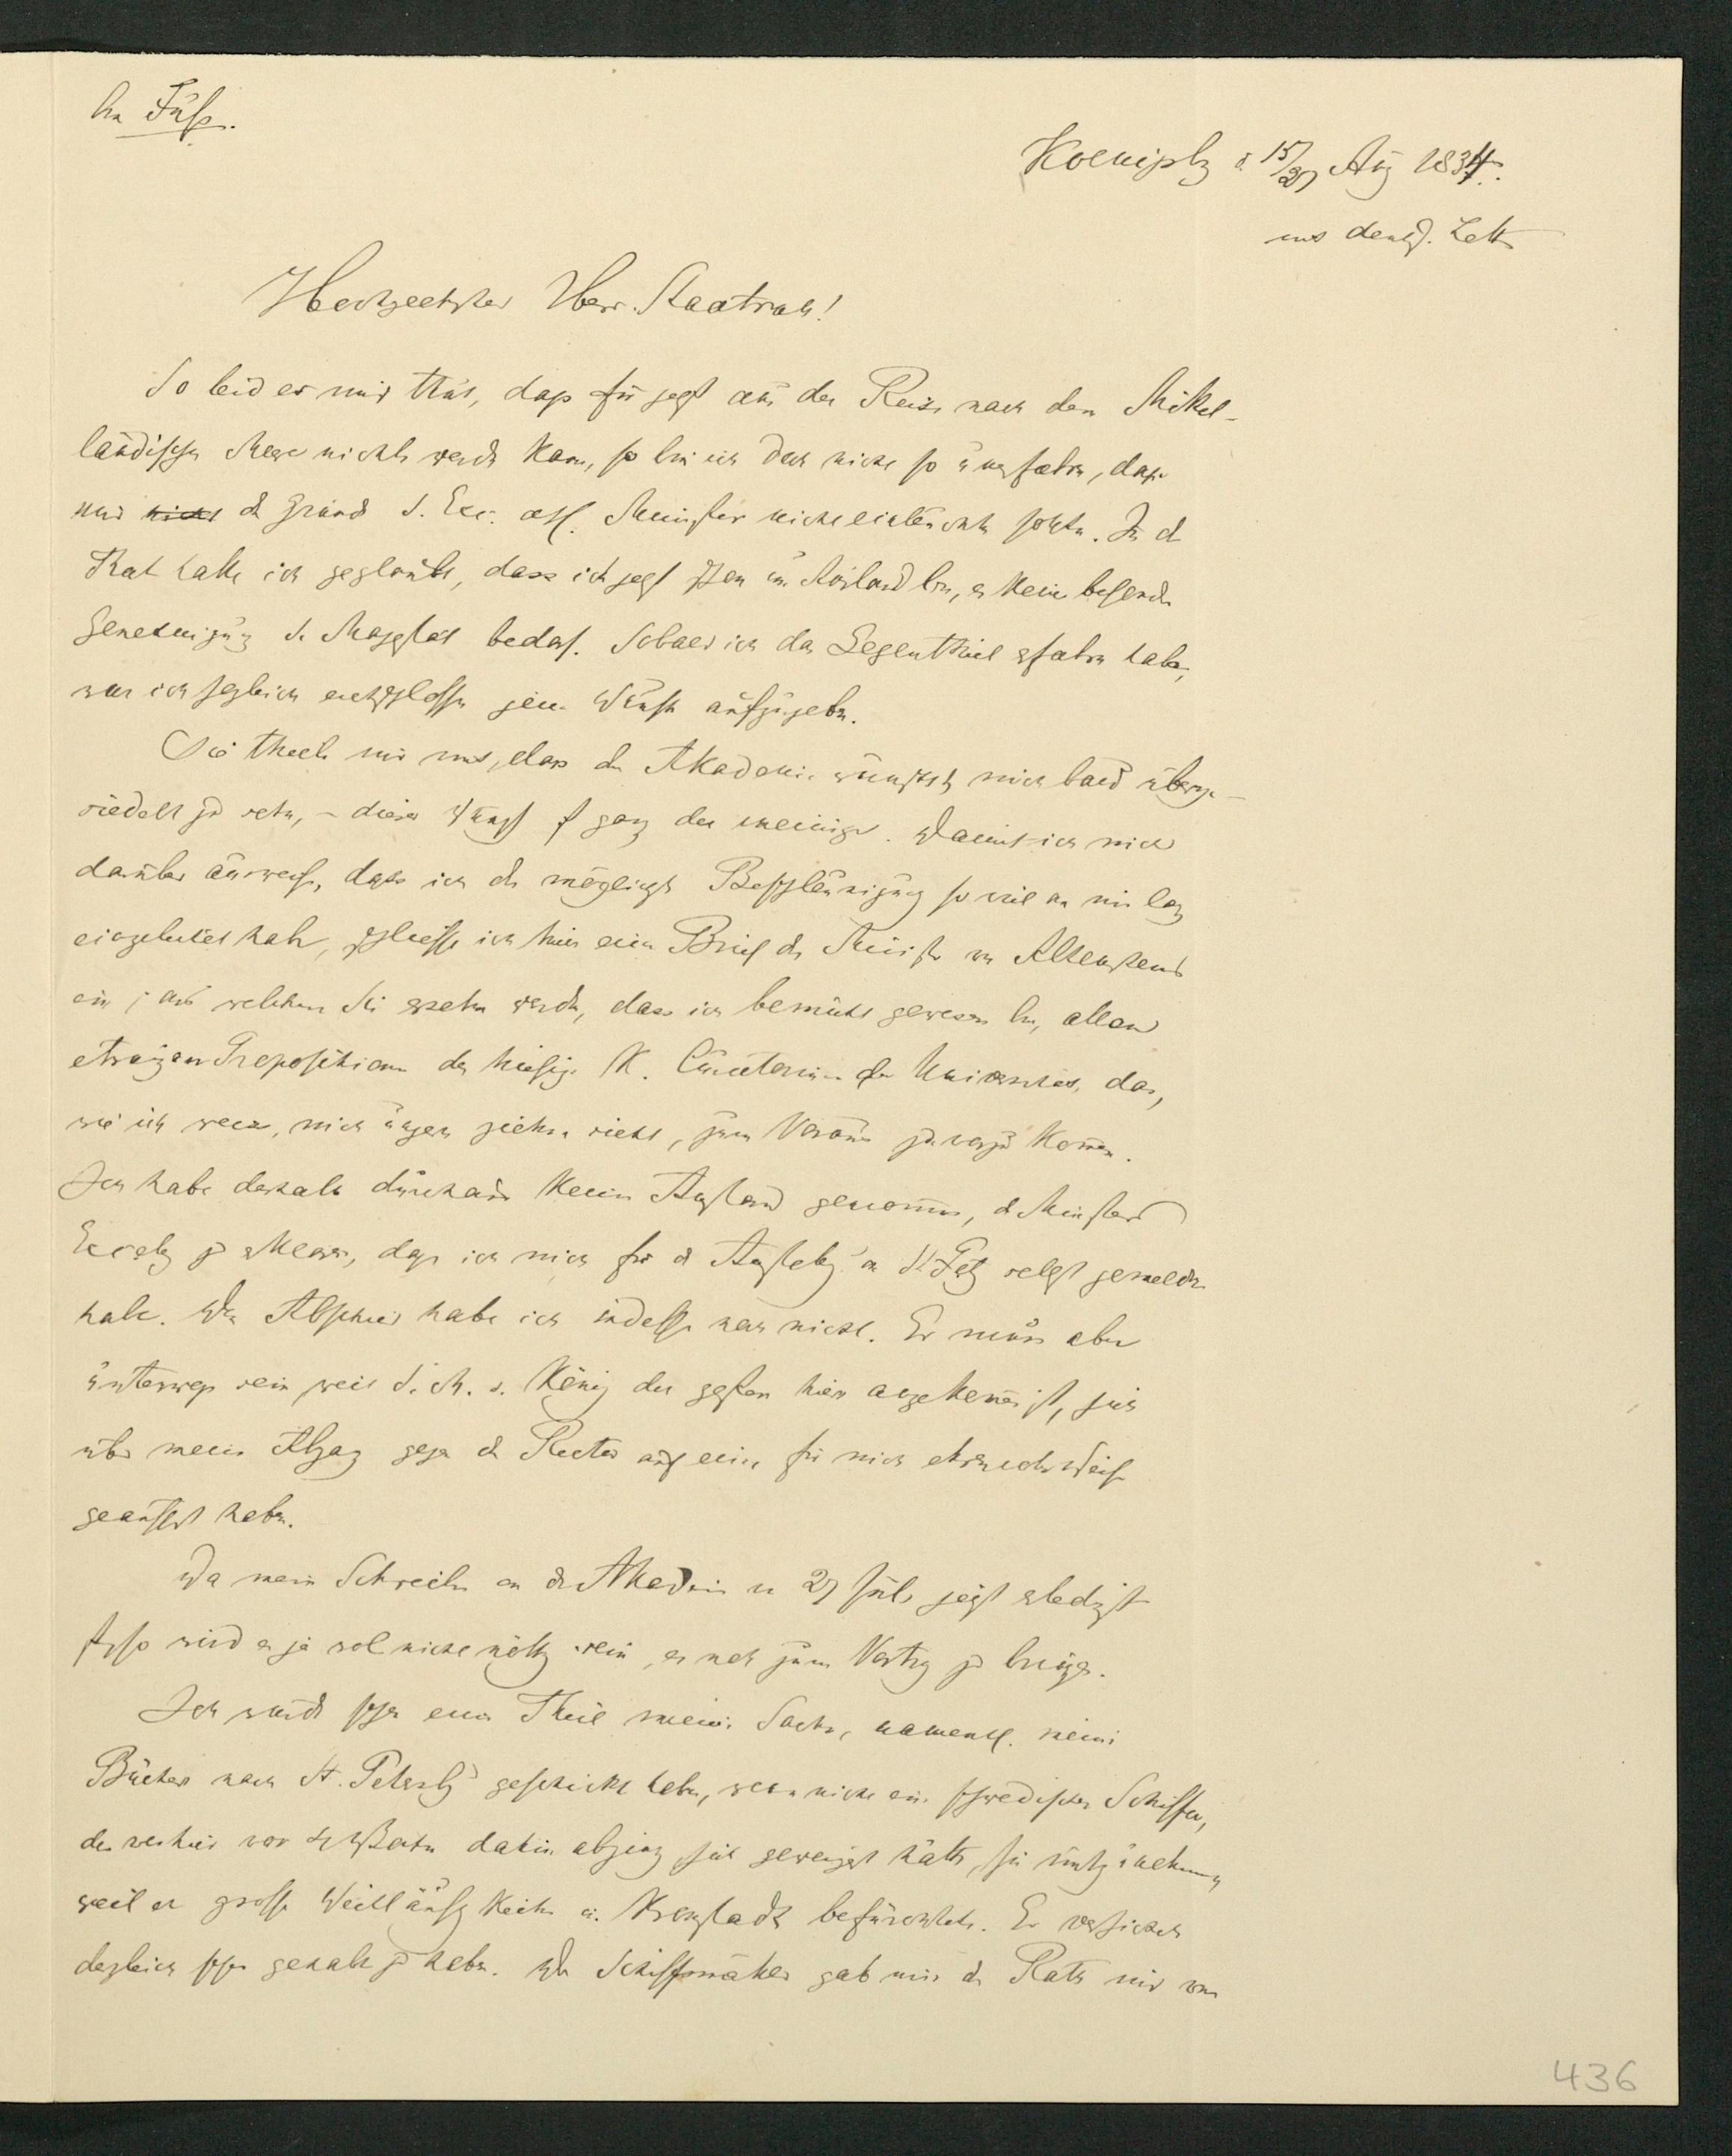 An Fuss.
Koenigsbg d. 15/27 Aug 1834.
mit deutsch. Lett
Hochgeehrter Herr Staatsrath!
So leid es mir thut, dass für jetzt aus der Reise nach dem Mittel-
ländischen Meere nichts werden kann, so bin ich doch nicht so unerfahren, dass
mir nicht die Gründe S. Exc. des H. Minister nicht einleuchten sollten. In d
That hatte ich geglaubt, dass ich jetzt schon im Ausland bin, es keine besondre
Genehmigung Sr Majestät bedarf. Sobald ich das Gegentheil erfahren habe,
war ich sogleich entschlossen jenen Wunsch aufzugeben.
Sie theilen mir mit, dass die Akademie wünscht, mich bald überge-
siedelt zu sehn, – dieser Wunsch ist ganz der meinige. Damit ich mich
darüber ausweise, dass ich die möglichste Beschleunigung so viel an mir lag
eingeleitet habe, schliesse ich hier einen Brief des Minister von Altenstein
ein, aus welchem Sie ersehen werden, dass ich bemüht gewesen bin, allen
etwaigen Propositionen des hiesigen K. Curatoriums der Universität, das,
wie ich weiss, mich ungern ziehen sieht, zum Voraus zuvorzukommen.
Ich habe deshalb durchaus keinen Anstand genommen, d Ministers
Excelz zu erklären, dass ich mich für die Anstellung in St. Petbg selbst gemeldet
habe. Den Abschied habe ich indessen noch nicht. Er muss aber
unterwegs sein weil S. M. d. König der gestern hier angekommen ist, sich
über meinen Abgang gegen den Rector auf eine für mich ehrenvolle Weise
geäussert haben.
Da mein Schreiben an die Akademie vom 27 Juli jetzt erledigt
ist, so wird es ja wol nicht nöthig sein, es noch zum Vortrag zu bringen.
Ich würde schon einen Theil meiner Sachen, namentl. meine
Bücher nach St. Petersbg geschickt haben, wenn nicht ein schwedischer Schiffer,
der von hier vor 4 Wochen dahin abging, sich geweigert hätte, sie mitzunehmen,
weil er grosse Weitläuftigkeiten in Kronstadt befürchtete. Er versicherte
dergleichen schon gehabt zu haben. Der Schiffsmäkler gab mir den Rath mir von
436